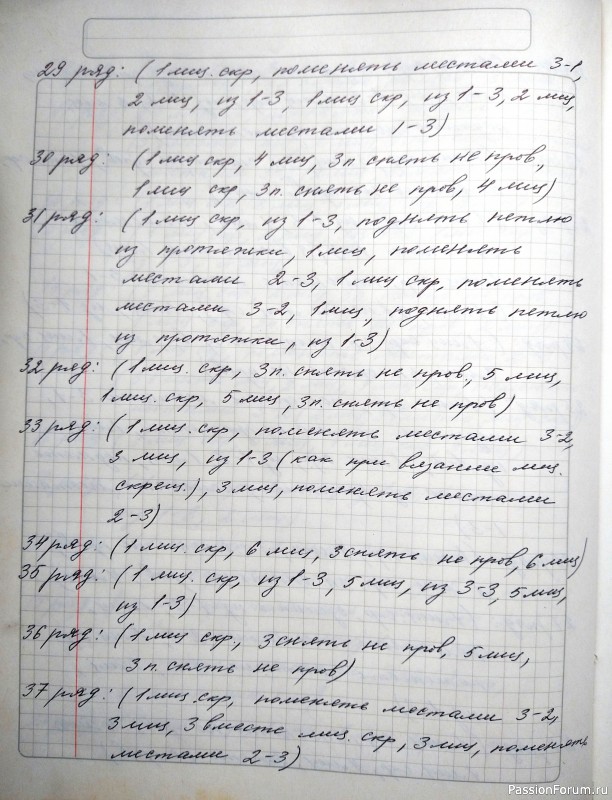 29 ряд: (1 лиц. скр, поменять местами 3-1,
2 лиц, из 1-3, 1 лиц скр, из 1-3, 2 лиц,
поменять местами 1-3)
30 ряд: (1 лиц скр, 4 лиц, 3п снять не пров,
1 лиц скр, 3п. снять не пров, 4 лиц)
31 ряд: (1 лиц скр, из 1-3, поднять петлю
из протяжки, 1 лиц, поменять
местами 2-3, 1 лиц скр, поменять
местами 3-2, 1 лиц., поднять петлю
из протяжки, из 1-3)
32 ряд: (1 лиц. скр, 3п. снять не пров., 5 лиц,
1 лиц. скр, 5 лиц, 3п. снять не пров)
33 ряд: (1 лиц. скр, поменять местами 3-2,
3 лиц, из 1-3 (как при вязание лиц.
скрещ.), 3 лиц, поменять местами
2-3)
34 ряд: (1 лиц. скр, 6 лиц, 3 снять не пров, 6 лиц)
35 ряд: (1 лиц. скр, из 1-3, 5 лиц, из 3-3, 5 лиц,
из 1-3)
36 ряд: (1 лиц скр, 3 снять не пров, 5 лиц,
3п. снять не пров)
37 ряд: (1 лиц. скр, поменять местами 3-2,
3 лиц, 3 вместе лиц. скр, 3 лиц, поменять
местами 2-3)
PassionForum.ru